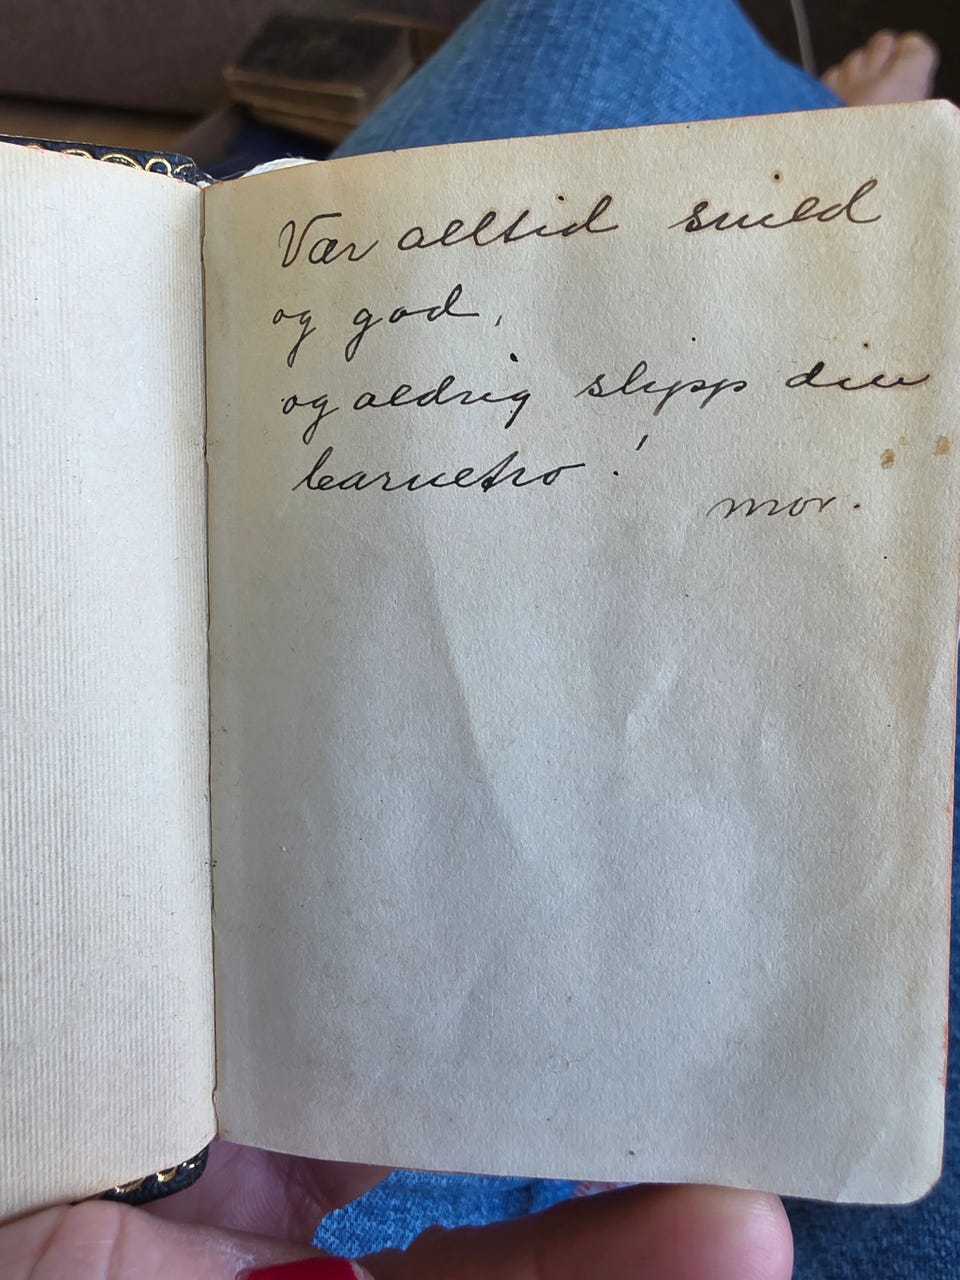 Vær alltid snild
og god,
og aldrig slipp din
barnetro!
mor.